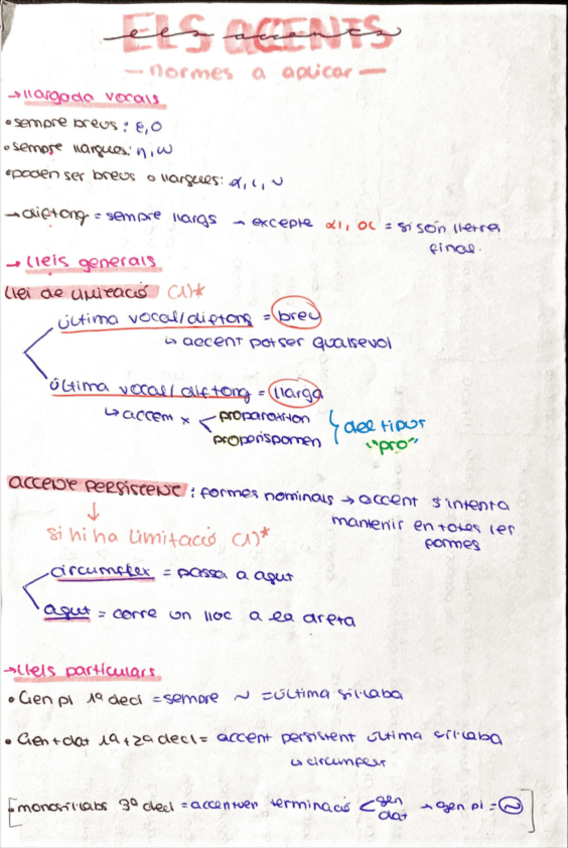 ELS ACCENTS
els accents
— normes a aplicar —
→ llargada vocals
• sempre breus: ε, ο
• sempre llargues: η, ω
• poden ser breus o llargues: α, ι, υ
→ diftong = sempre llargs → excepte αι, οι = si són lletra
final.
→ lleis generals
llei de limitació (1)*
última vocal/diftong = breu
↳ accent pot ser qualsevol
última vocal/diftong = llarga
↳ accent x < proparoxíton
properispomen } del tipus
"pro"
accent persistent: formes nominals → accent s'intenta
mantenir en totes les
formes
↓
si hi ha limitació (1)*
circumflex = passa a agut
agut = corre un lloc a la dreta
→ lleis particulars
• Gen pl 1ª decl = sempre ~ = última síl·laba
• Gen + dat 1ª + 2ª decl = accent persistent última síl·laba
↳ circumflex
[monosíl·labs 3ª decl = accentuen terminació < gen
dat → gen pl = ~]